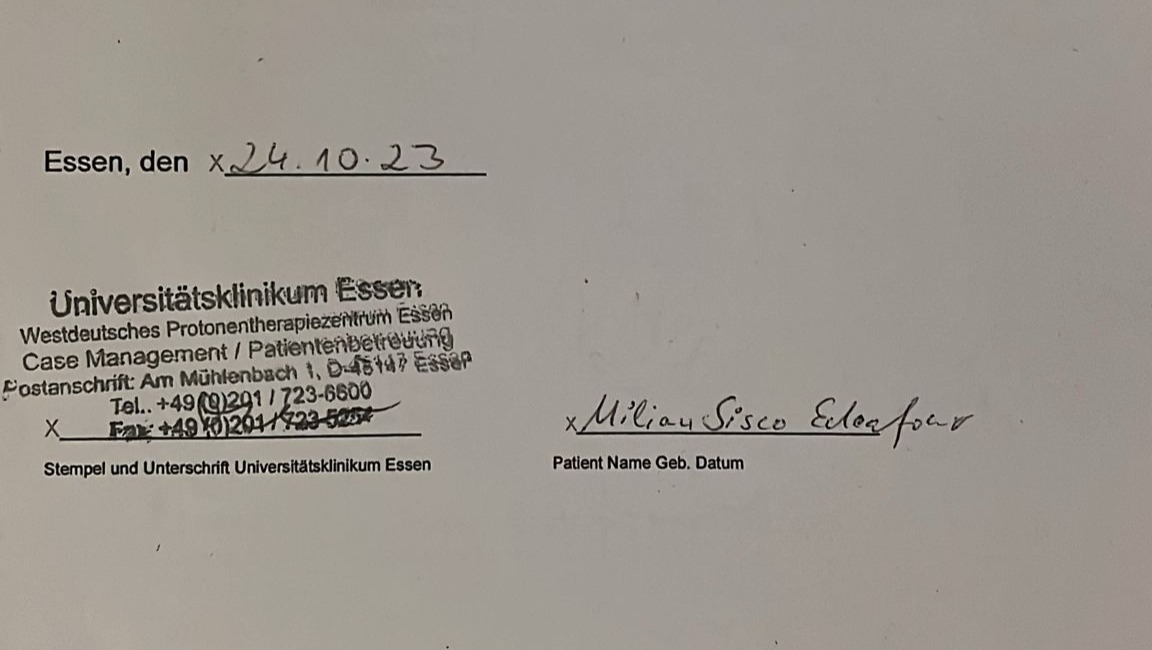 Essen, den x 24.10.23
Universitätsklinikum Essen
Westdeutsches Protonentherapiezentrum Essen
Case Management / Patientenbetreuung
Postanschrift: Am Mühlenbach 1, D-45147 Essen
Tel.. +49 (0)201 / 723-6600
X Fax: +49 (0)201 / 723-5254
x Milian Sisco
Stempel und Unterschrift Universitätsklinikum Essen
Patient Name Geb. Datum